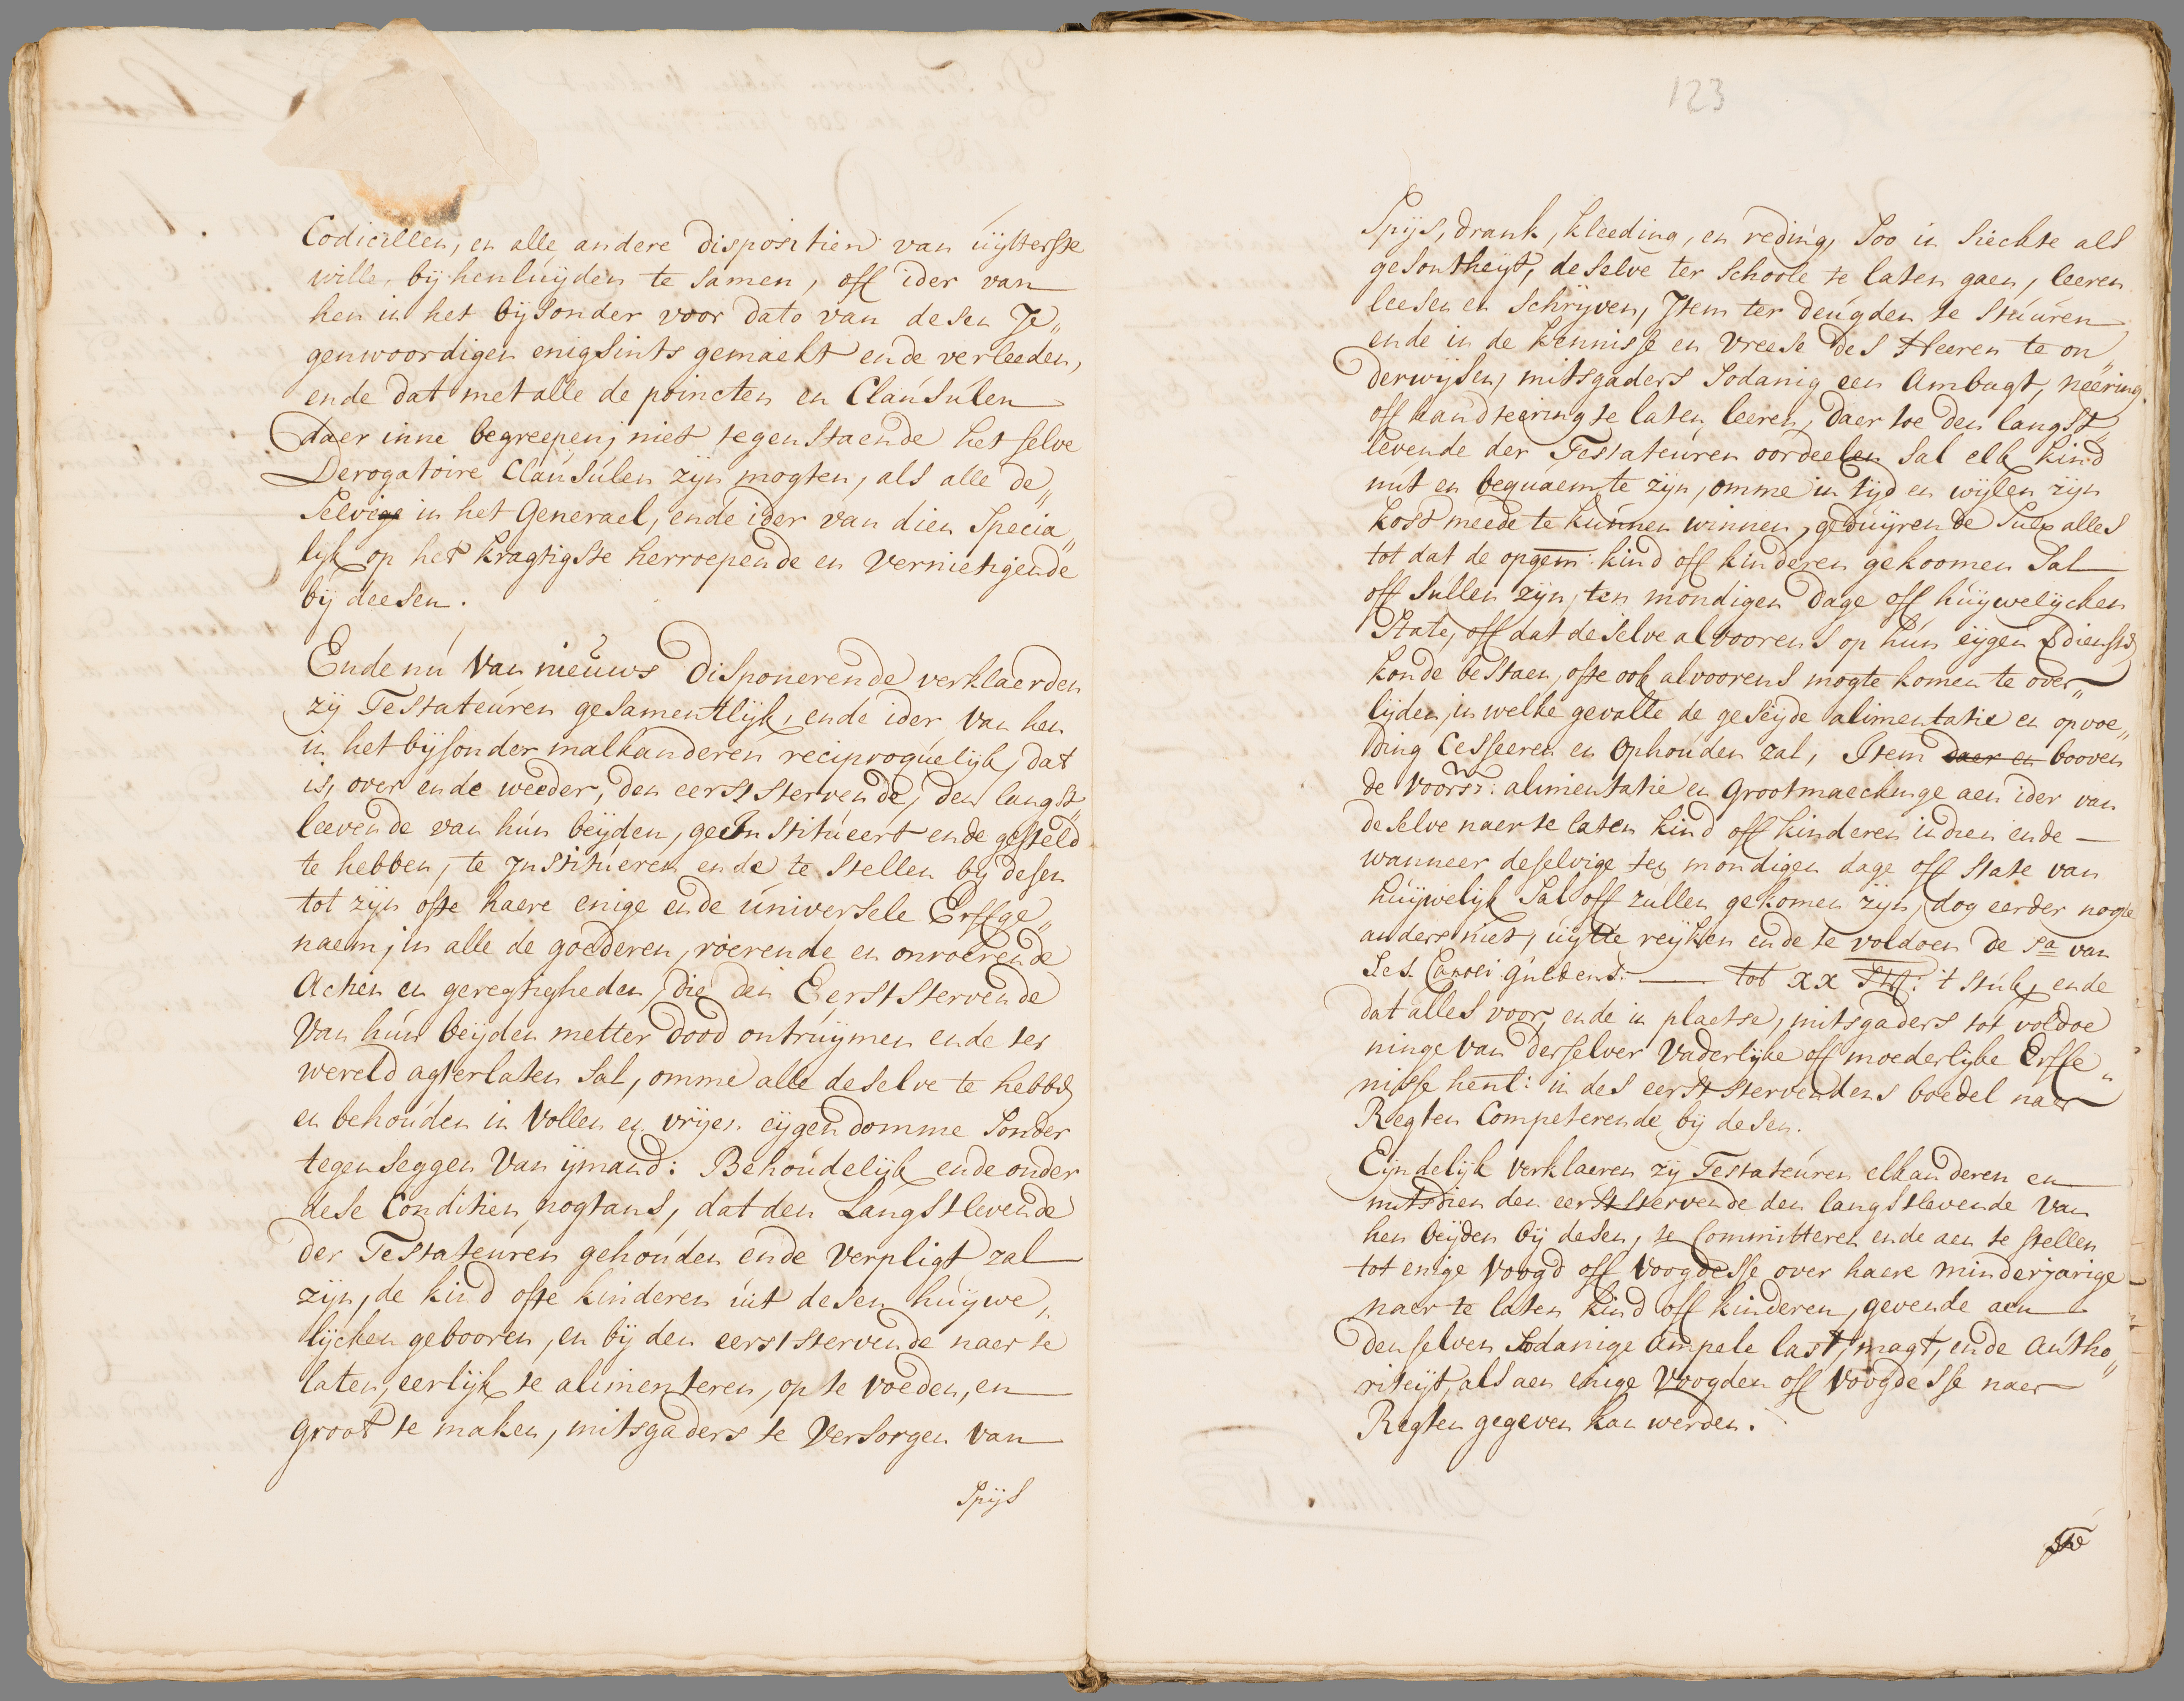 Codicillen, en alle andere dispositien van uÿtterste
wille, bÿ henluÿden te samen, off ider van
hen in het bÿsonder voor dato van desen Je„
genwoordigen enigsints gemaekt ende verleeden,
ende dat met alle de poincten en Clausulen
daer inne begreepen, niet tegenstaende het selve
Derogatoire Clausulen zÿn mogten, als alle de„
selvige in het Generael, ende ider van dien Specia„
lÿk op het kragtigste herroepende en vernietigende
bÿ deesen.
Ende nu van nieuws disponerende verklaerden
zÿ Testateuren gesamentlÿk, ende ider van hen
in het bÿsonder malkanderen reciproquelÿk, dat
is, over ende weeder, den eerststervende, den langst„
leevende van hun beÿden, geInstitueert ende gesteld
te hebben, te Institueren ende te stellen bÿ desen
tot zÿn ofte haere enige ende universele Erffge„
naem, in alle de goederen, roerende en onroerende
Actien en geregtigheden, die den Eerststervende
van hun beÿden metter dood ontruÿmen ende ter
wereld agterlaten sal, omme alle deselve te hebben
en behouden in vollen en vrÿen eÿgendomme sonder
tegenseggen van ÿmand: Behoudelÿk ende onder
dese Conditien nogtans, dat den Langstlevende
der Testateuren gehouden ende verpligt zal
zÿn, de kind ofte kinderen uit desen huÿwe„
lÿcken gebooren, en bÿ den eerststervende naer te
laten, eerlÿk te alimenteren, op te voeden, en
groot te maken, mitsgaders te versorgen van
Spÿs
123
Spÿs, drank, kleeding, en reding, soo in siechte als
gesontheÿt, deselve ter schoole te laten gaen, leeren
leesen en schrÿven, Item ter deugden te stuuren
ende in de kennisse en vreese des Heeren te on„
derwÿsen, mitsgaders sodanig een ambagt, neering
off handteering te laten leeren, daer toe den langst„
levende der Testateuren oordeelen sal elk kind
nut en bequaem te zÿn, omme in tÿd en wÿlen zÿn
kost meede te kunnen winnen, geduÿrende sulx alles
tot dat de opgem: kind off kinderen gekoomen sal
off sullen zÿn, ten mondigen dage off huÿwelÿcken
State, off dat deselve alvoorens op hun eÿgen dienst
konde bestaen, ofte ook alvoorens mogte komen te over„
lÿden, in welke gevalle de geseÿde alimentatie en opvoe„
ding Cesseeren en Ophouden zal, Item daer en booven
de voorsz: alimentatie en Grootmaeckinge aen ider van
deselve naer te laten kind off kinderen indien ende
wanneer deselvige ten mondigen dage off state van
huÿwelÿk sal off zullen gekomen zÿn, dog eerder nogte
anders niet, uÿtte reÿken ende te voldoen de sa van
Ses Caroli guldens: tot XX St: 't stuk, ende
dat alles voor, ende in plaetse, mitsgaders tot voldoe
ninge van derselver vaderlÿke off moederlÿke Erffe„
nisse henl: in des eerststervendens boedel naer
Regten Competerende bÿ desen.
Eÿndelÿk verklaeren zÿ Testateuren elkanderen en
mitsdien den eerststervende den langstlevende van
hen beÿden bÿ desen, te Committeren ende aen te stellen
tot enige voogd off voogdesse over haere minderjarige
naer te laten kind off kinderen, gevende aen
denselven sodanige ampele last, magt, ende autho„
riteÿt, als aen enige voogden off voogdesse naer
Regten gegeven kan werden.